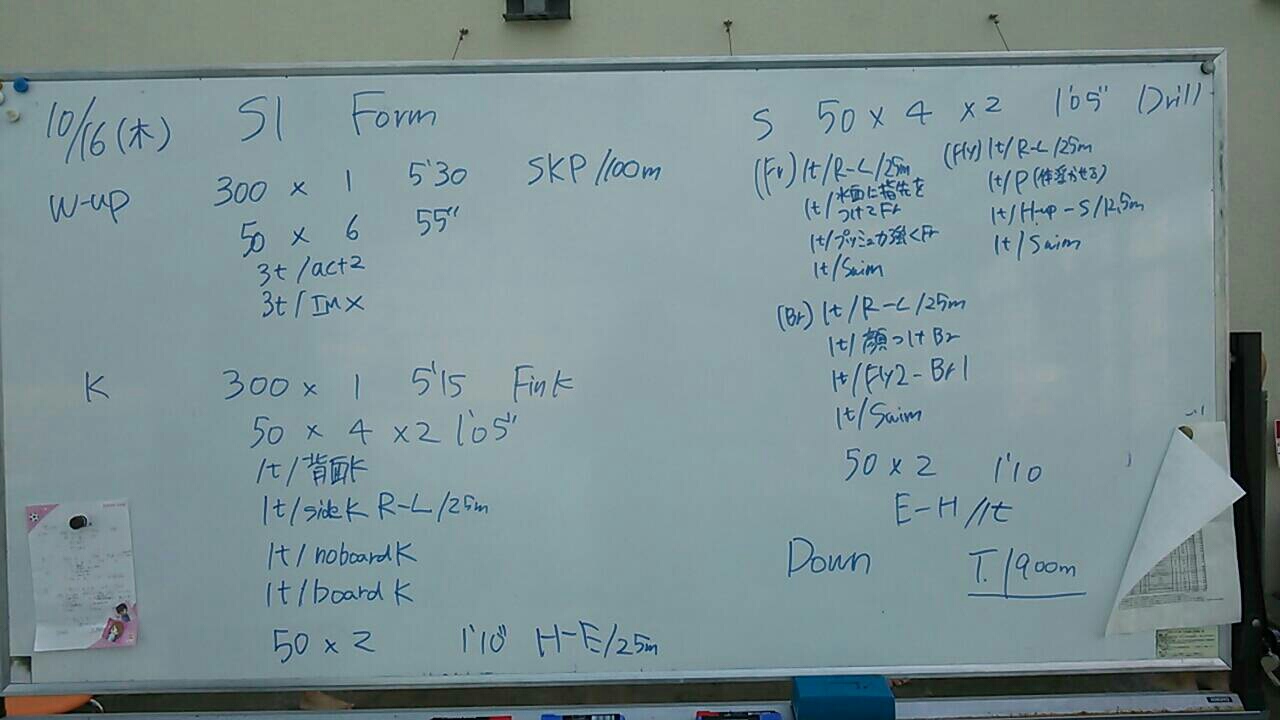 10/16(木) S1 Form
W-up 300 × 1 5'30 SKP/100m
50 × 6 55"
3t/act2
3t/IM×
K 300 × 1 5'15 Fin K
50 × 4 ×2 1'05"
1t/背面K
1t/sideK R-L/25m
1t/noboardK
1t/board K
50 × 2 1'10" H-E/25m
S 50 × 4 ×2 1'05" Drill
(Fr) 1t/R-L/25m
1t/水面に指先を
つけてFr
1t/プッシュ力強くFr
1t/Swim
(Fly) 1t/R-L/25m
1t/P(体浮かせる)
1t/H-up-S/12.5m
1t/Swim
(Br) 1t/R-L/25m
1t/顔つけBr
1t/Fly2-Br1
1t/Swim
50 × 2 1'10
E-H/1t
Down T.1900m